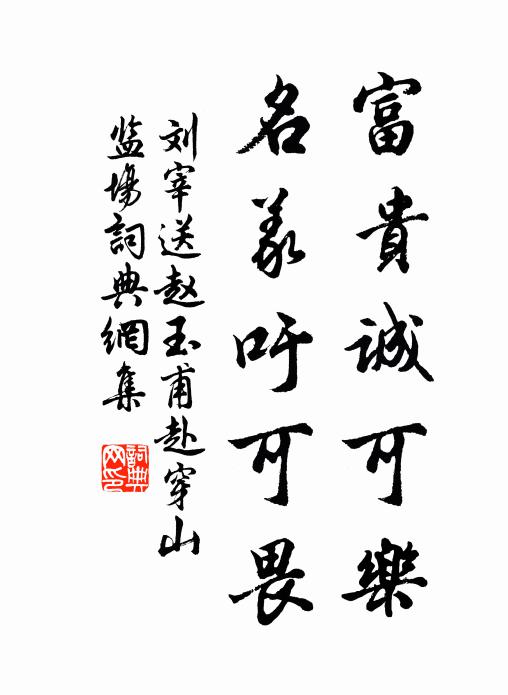 富貴誠可樂
名義吁可畏
刘宰送赵玉甫赴穿山
监場詞典網集
詞典
网印